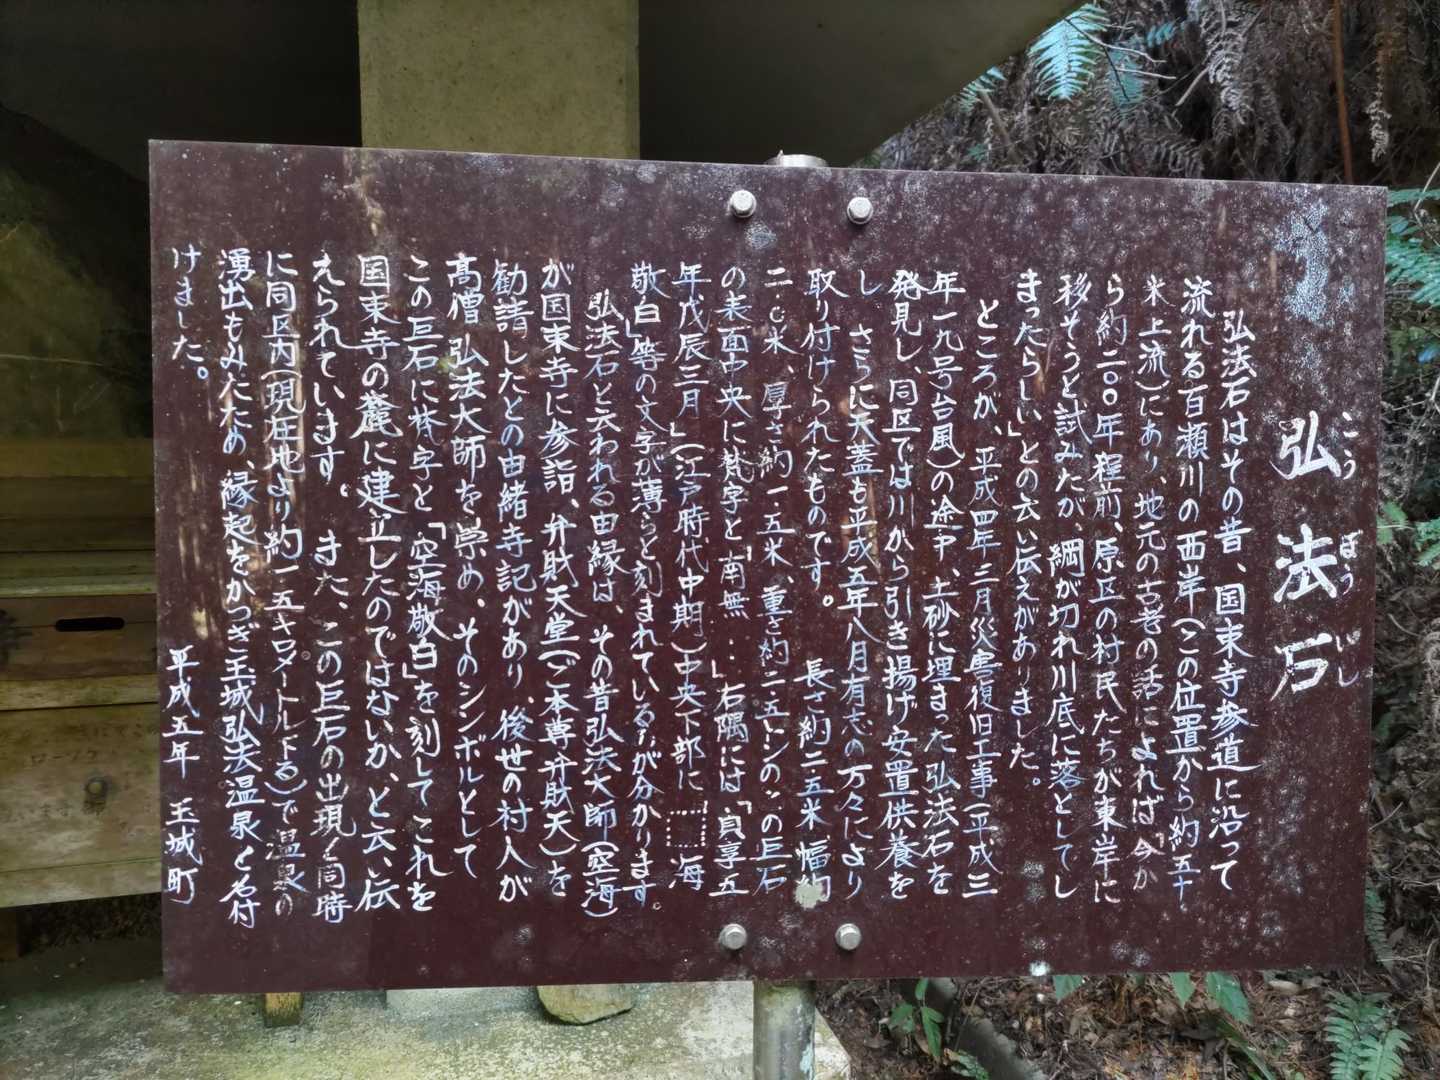 弘法石
こうぼういし
弘法石はその昔、国束寺参道に沿って
流れる百瀬川の西岸(この位置から約五十
米上流)にあり、地元の古老の話によれば「今か
ら約二〇〇年程前、原区の村民たちが東岸に
移そうと試みたが、綱が切れ川底に落としてし
まったらしい」との云い伝えがありました。
ところが、平成四年三月災害復旧工事(平成三
年一九号台風)の途中、土砂に埋まった弘法石を
発見し、同区では川から引き揚げ安置供養を
し さらに天蓋も平成五年八月有志の方々により
取り付けられたものです。 長さ約二・五米 幅約
二・〇米、厚さ約一・五米、重さ約二・五トンのこの巨石
の表面中央に梵字と「南無・・」右隅には「貞享五
年戊辰三月」(江戸時代中期)中央下部に 海
敬白」等の文字が薄らと刻まれているのが分かります。
弘法石と云われる由縁は、その昔弘法大師(空海)
が国束寺に参詣、弁財天堂(ご本尊弁財天)を
勧請したとの由緒寺記があり、後世の村人が
高僧弘法大師を崇め、そのシンボルとして
この巨石に梵字と「空海敬白」を刻してこれを
国束寺の麓に建立したのではないか、と云い伝
えられています。 また、この巨石の出現と同時
に同区内(現在地より約一・五キロメートル下る)で温泉の
湧出もみたため、縁起をかつぎ玉城弘法温泉と名付
けました。
平成五年 玉城町
ローソク